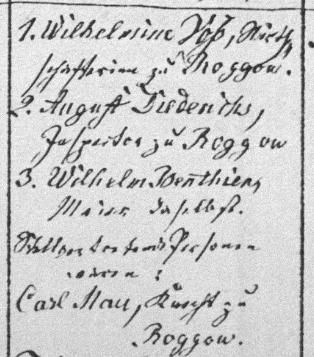 1. Wilhelmine Voß, Wirth-
schafterin zu Roggow.
2. August Diederichs,
Inspector zu Roggow
3. Wilhelm Benthien,
Meier daselbst.
Stellvertretende Personen
waren:
Carl Mau, Knecht zu
Roggow.